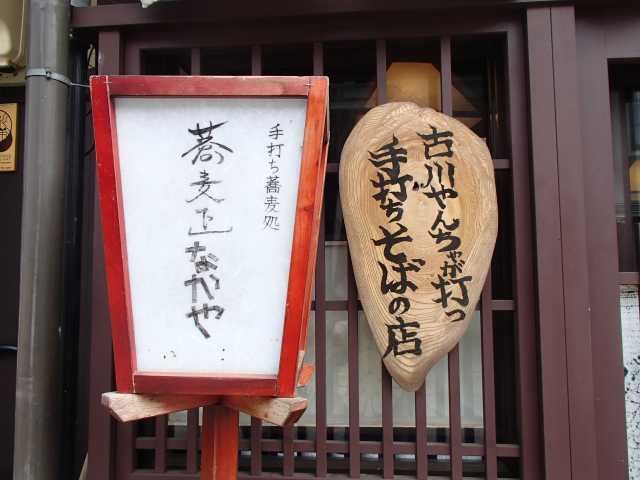 手打ち蕎麦処
蕎麦正なかや
古川やんちゃが打つ
手打ちそばの店